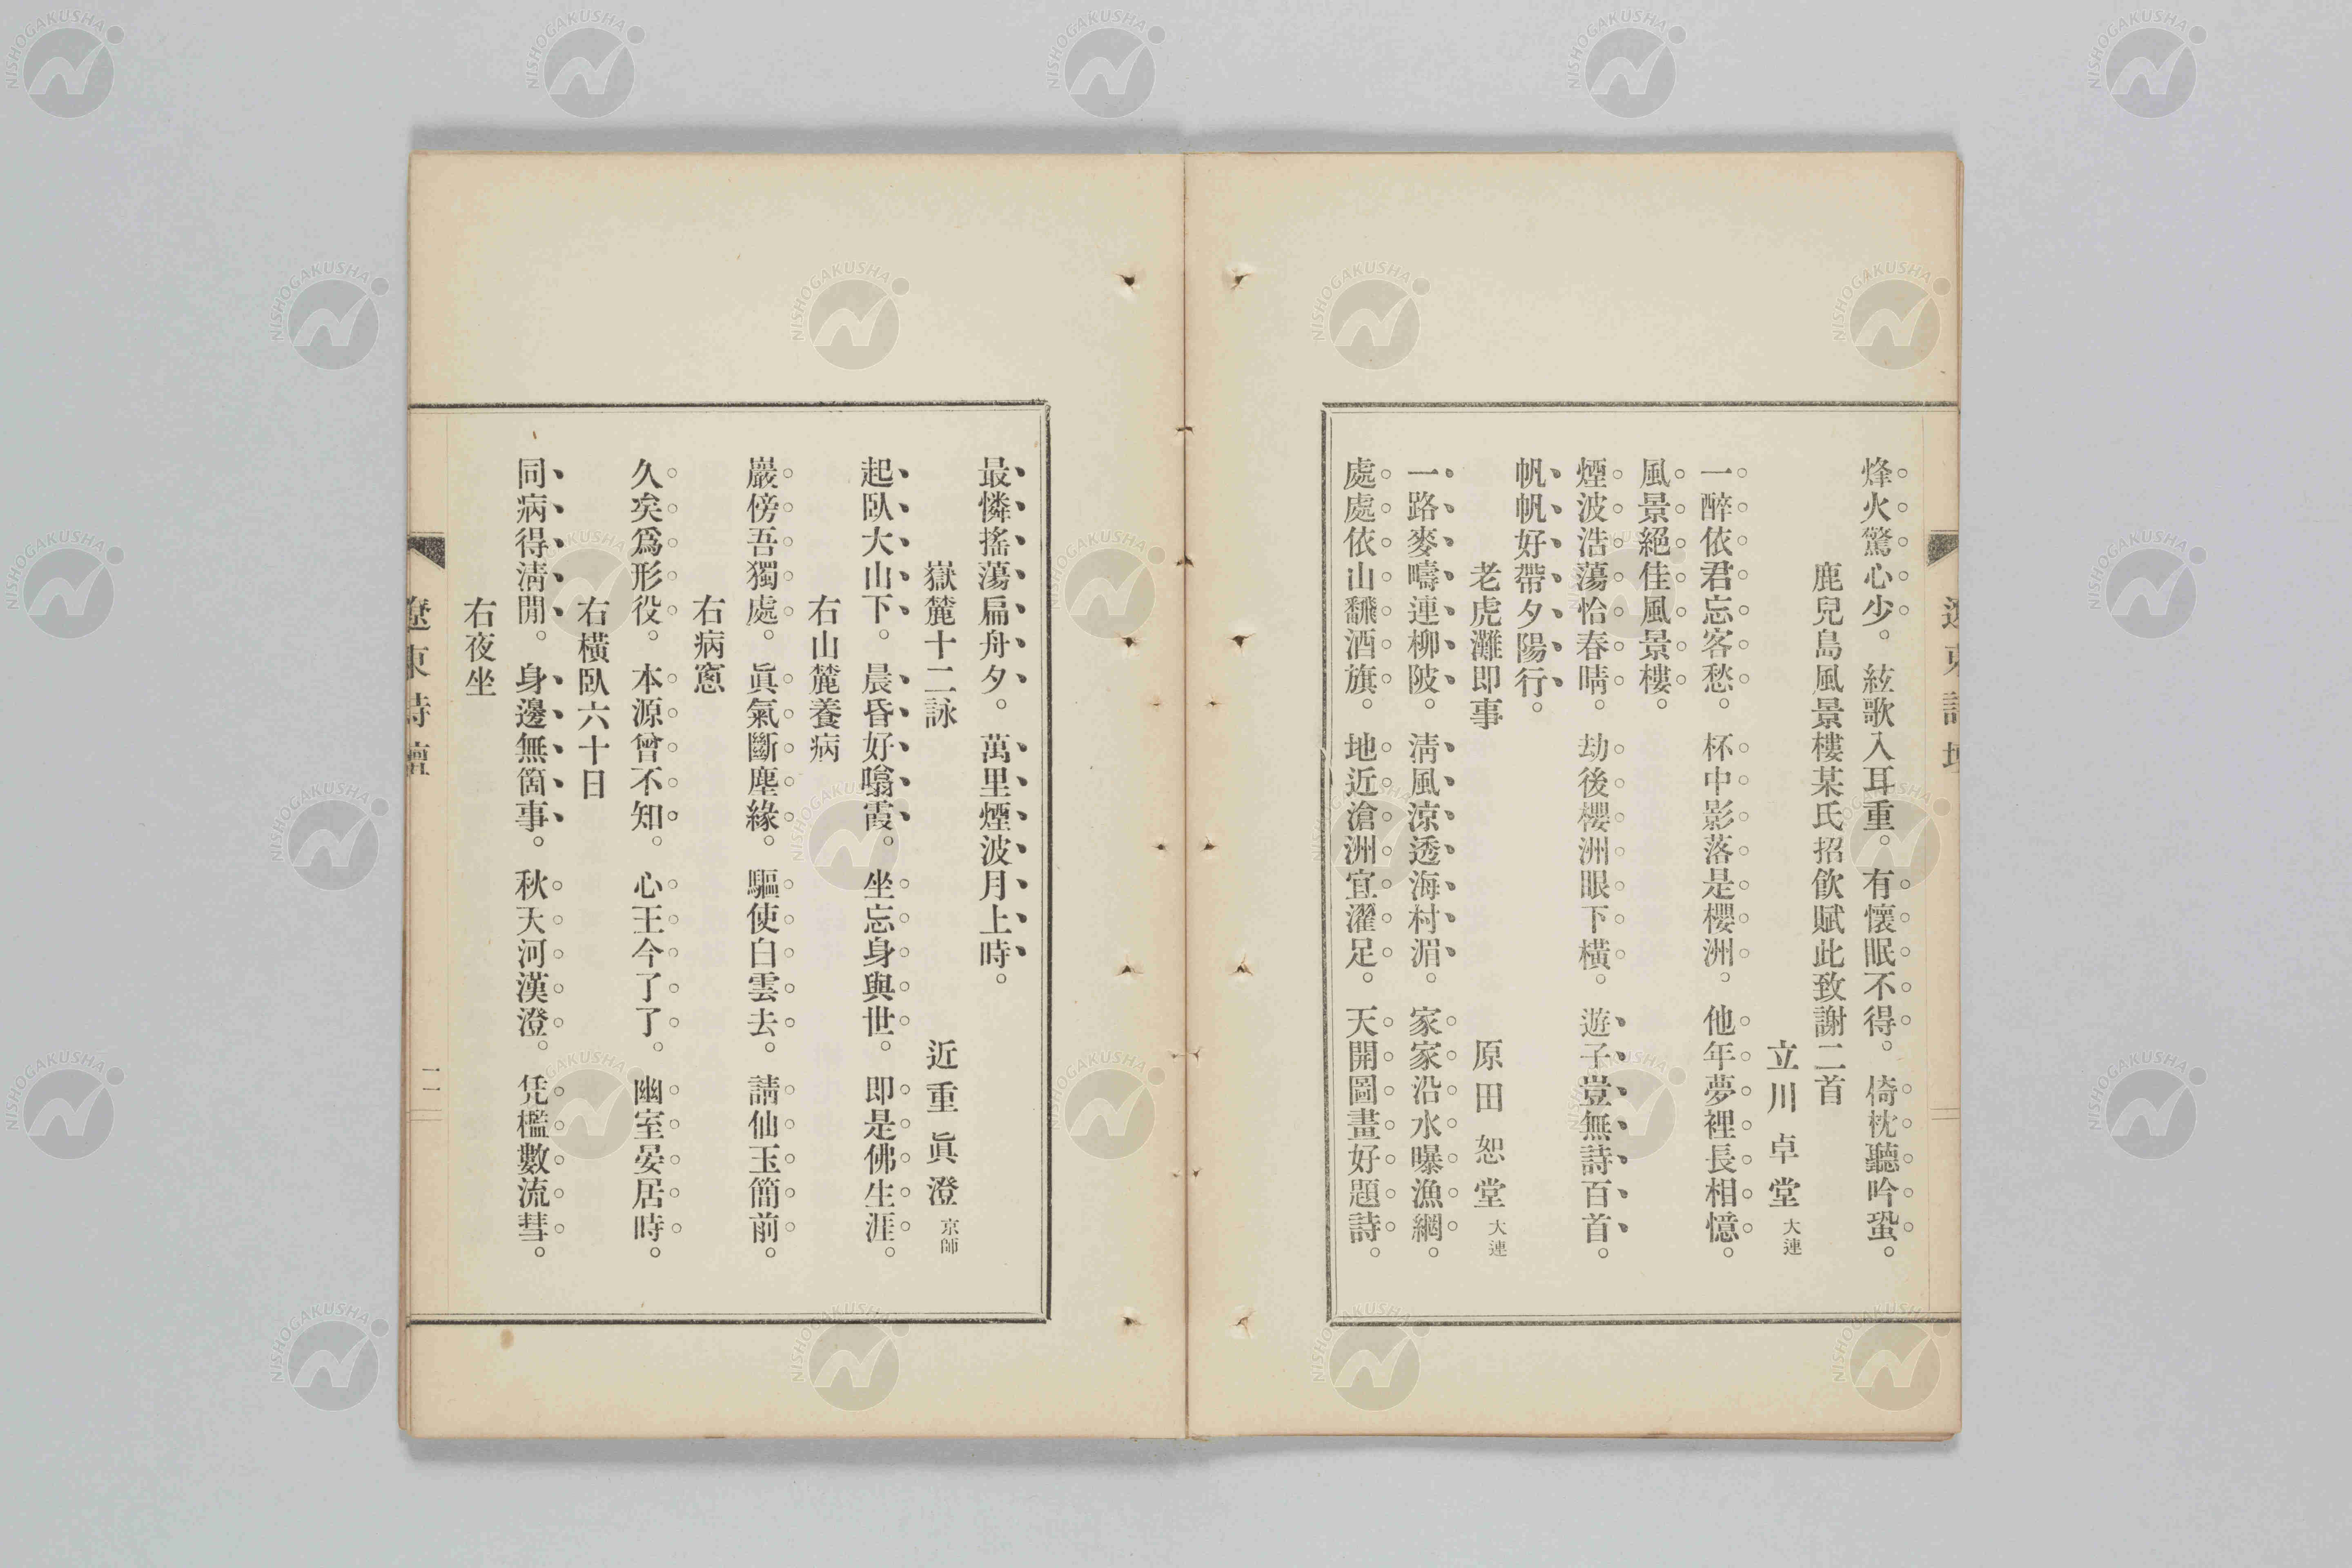 烽火驚心少。絃歌入耳重。有懷眠不得。倚枕聽吟蛩。
鹿兒島風景樓某氏招飮賦此致謝二首
立川卓堂大連
一醉依君忘客愁。杯中影落是櫻洲。他年夢裡長相憶。
風景絕佳風景樓。
煙波浩蕩恰春晴。劫後櫻洲眼下橫。遊子豈無詩百首。
帆帆好帶夕陽行。
老虎灘即事
原田恕堂大連
一路麥疇連柳陂。淸風凉透海村湄。家家沿水曝漁網。
處處依山飜酒旗。地近滄洲宜濯足。天開圖畫好題詩。
最憐搖蕩扁舟夕。萬里煙波月上時。
嶽麓十二詠
近重眞澄京師
起臥大山下。晨昏好噏霞。坐忘身與世。即是佛生涯。
右山麓養病
巖傍吾獨處。眞氣斷塵緣。驅使白雲去。請仙玉簡前。
右病窻
久矣爲形役。本源曾不知。心王今了了。幽室晏居時。
右橫臥六十日
同病得淸閒。身邊無箇事。秋天河漢澄。凭檻數流彗。
右夜坐
遼東詩壇
一一
NISHOGAKUSHA